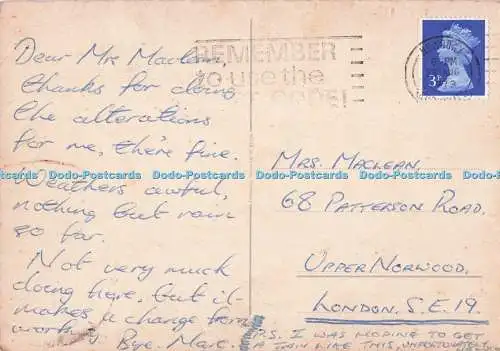 Dear Mrs Maclean,
thanks for doing
the alterations
for me, there fine.
Weathers awful,
nothing but rain
so far.
Not very much
doing here, but it
makes a change from
work. Bye. Marc.
REMEMBER
to use the
CODE!
3P
MRS. MACLEAN.
68 PATTERSON ROAD.
UPPER NORWOOD.
LONDON. S.E.19.
P.S. I WAS HOPING TO GET
A TAN LIKE THIS, UNFORTUNATELY
Dodo-Postcards Dodo-Postcards Dodo-Postcards Dodo-Postcards Dodo-Postcards